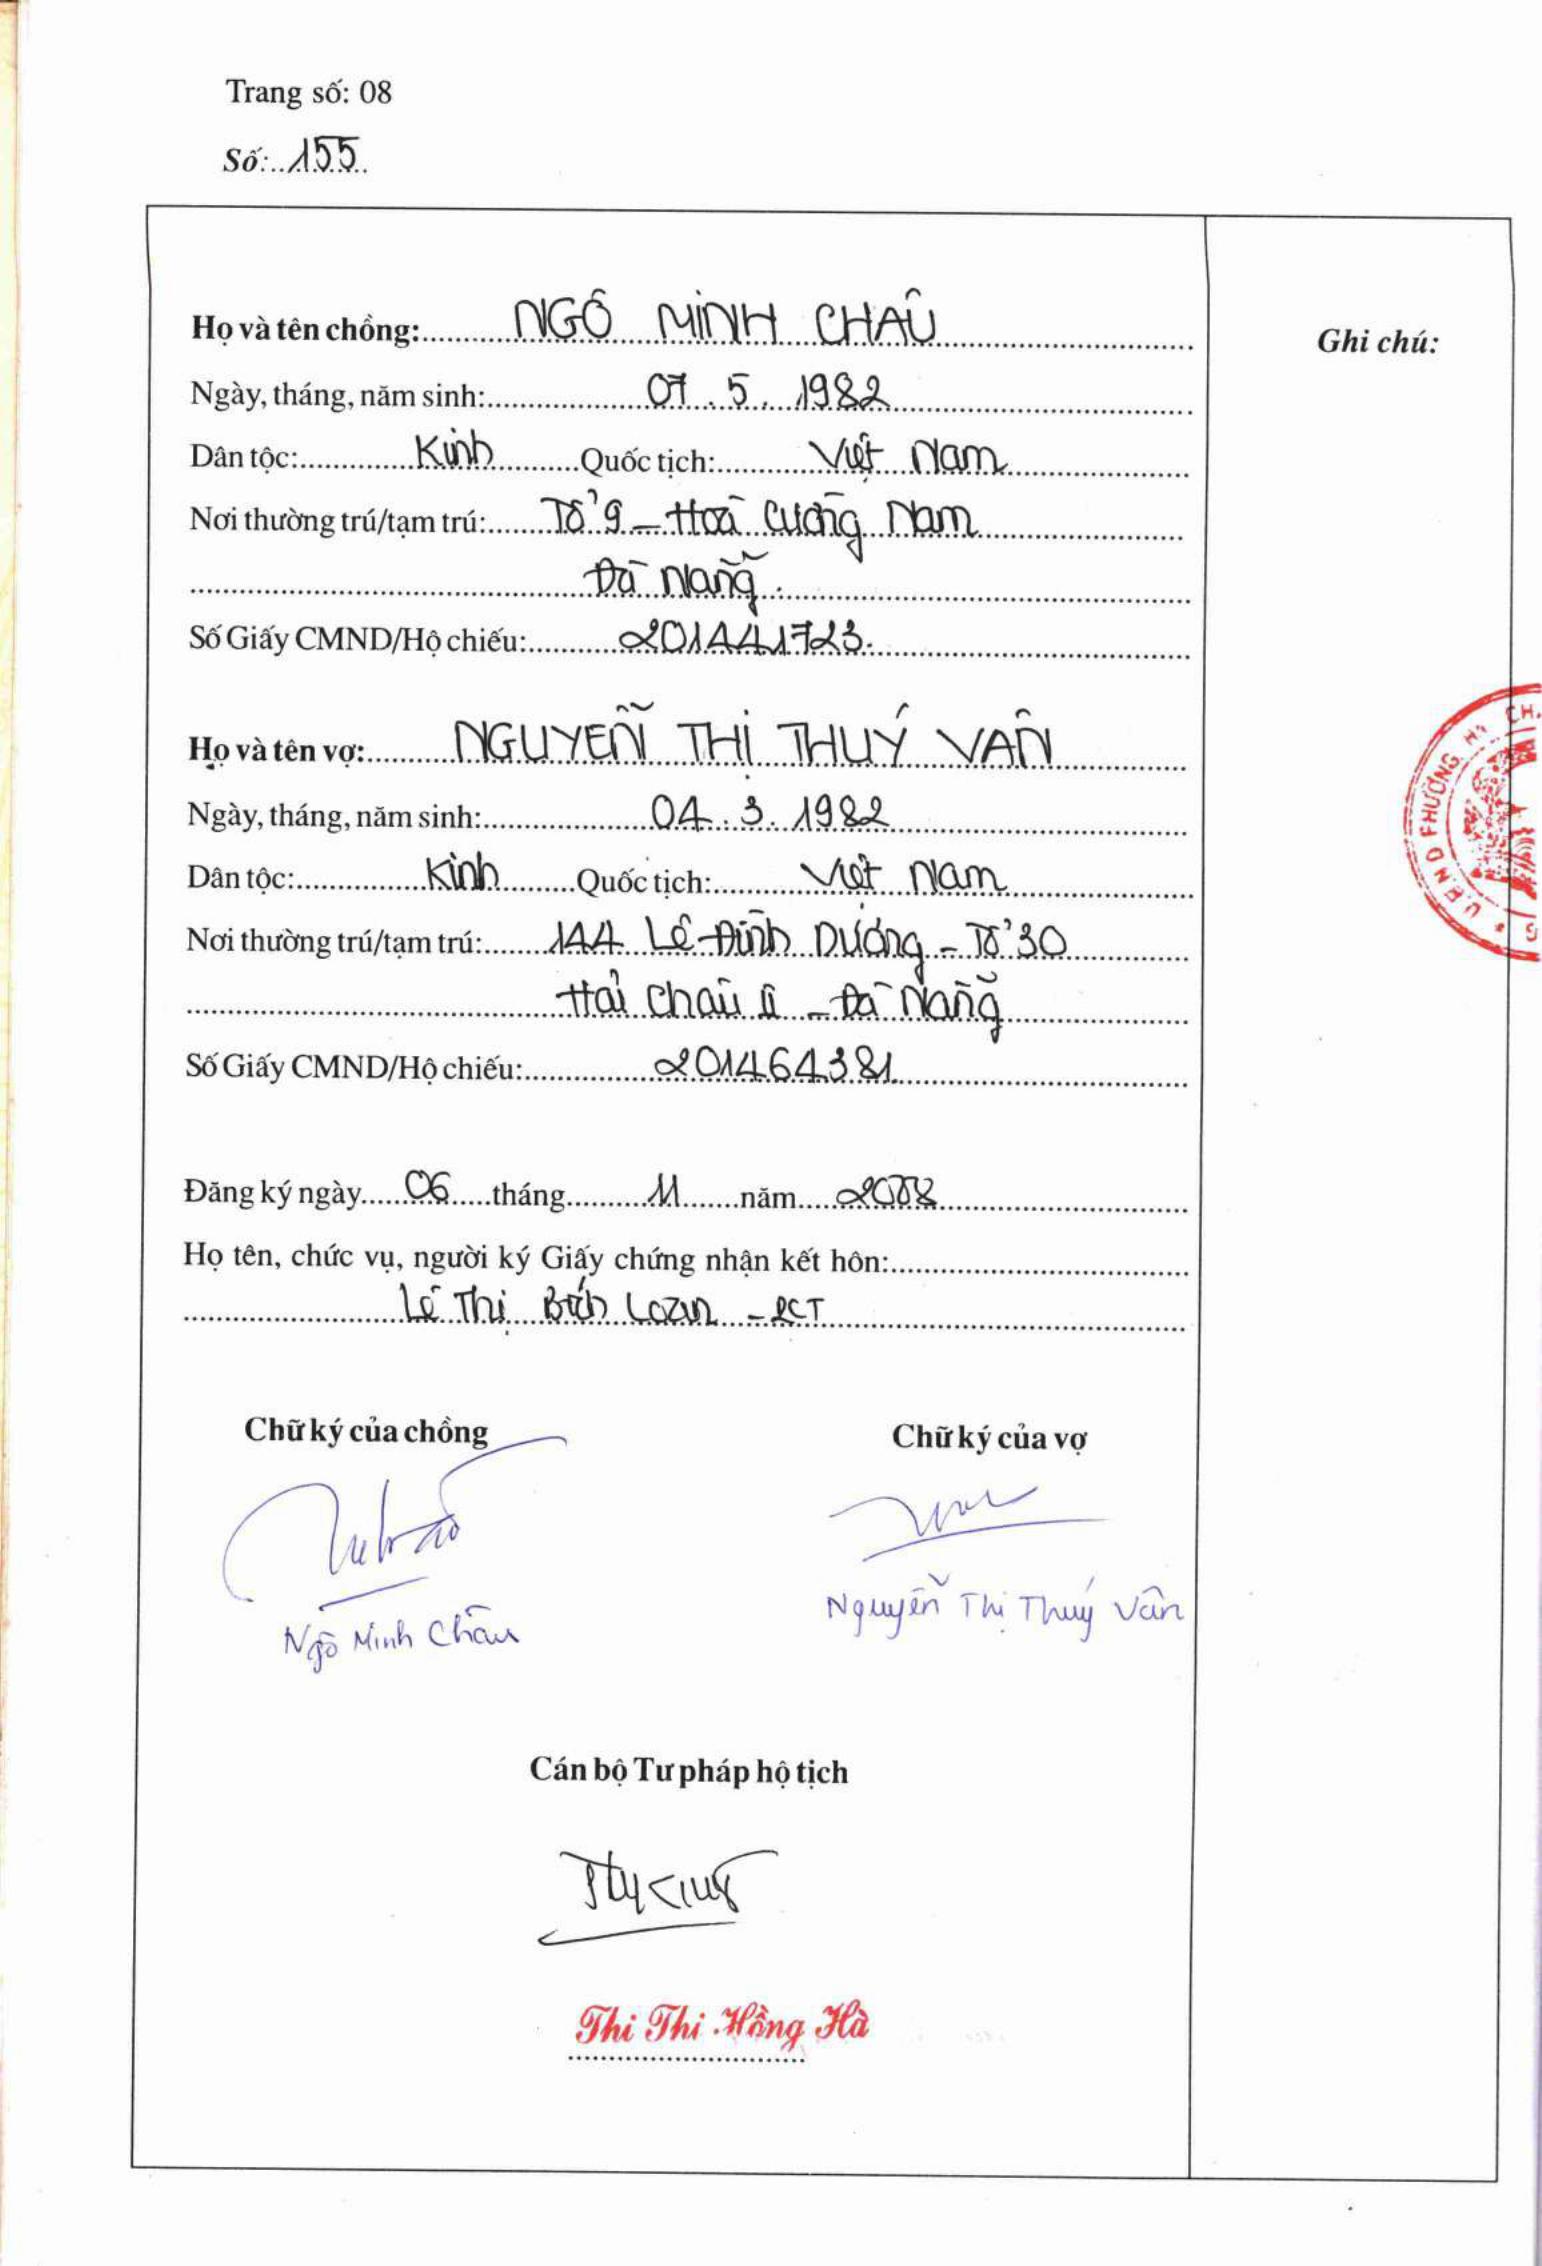 Trang số: 08
Số: 155
Họ và tên chồng: NGÔ MINH CHÂU
Ghi chú:
Ngày, tháng, năm sinh: 07.5.1982
Dân tộc: Kinh Quốc tịch: Việt Nam
Nơi thường trú/tạm trú: Tổ 9 - Hoà Cường Nam
Đà Nẵng.
Số Giấy CMND/Hộ chiếu: 201441723.
Họ và tên vợ: NGUYỄN THỊ THUÝ VÂN
Ngày, tháng, năm sinh: 04.3.1982
Dân tộc: Kinh Quốc tịch: Việt Nam
Nơi thường trú/tạm trú: 144 Lê Đình Dương - Tổ 30
Hải Châu II - Đà Nẵng
Số Giấy CMND/Hộ chiếu: 201464381
U.B.N.D PHƯỜNG
Đăng ký ngày 06 tháng 11 năm 2008
Họ tên, chức vụ, người ký Giấy chứng nhận kết hôn:
Lê Thị Bích - PCT
Chữ ký của chồng Chữ ký của vợ
Ngô Minh Châu
Nguyễn Thị Thuý Vân
Cán bộ Tư pháp hộ tịch
Thi Thi Hồng Hà